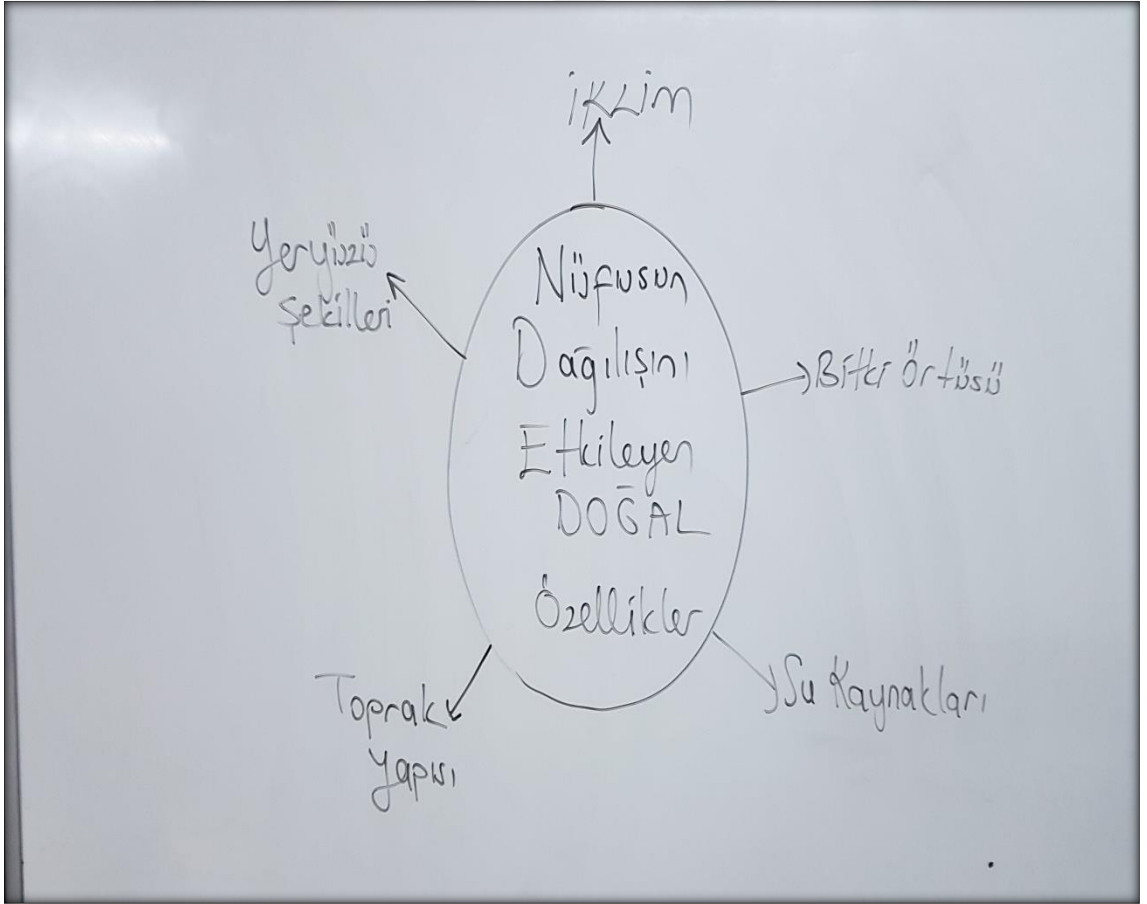 İKLİM
Yeryüzü
Şekilleri
Nüfusun
Dağılışını
Etkileyen
DOĞAL
Özellikler
Bitki Örtüsü
Toprak
Yapısı
Su Kaynakları